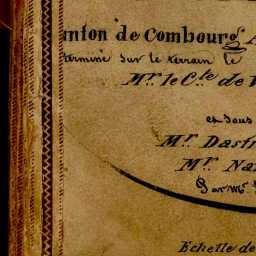 anton de Combourg
terminé sur le terrain le
Mr. le Cte. de
et sous
Mr. Dast
Mr. Na
Par Mr.
Echelle de